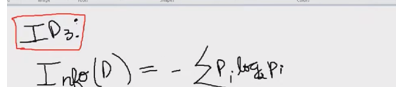 ID3:
Info(D) = - ∑ Pi log₂ Pi